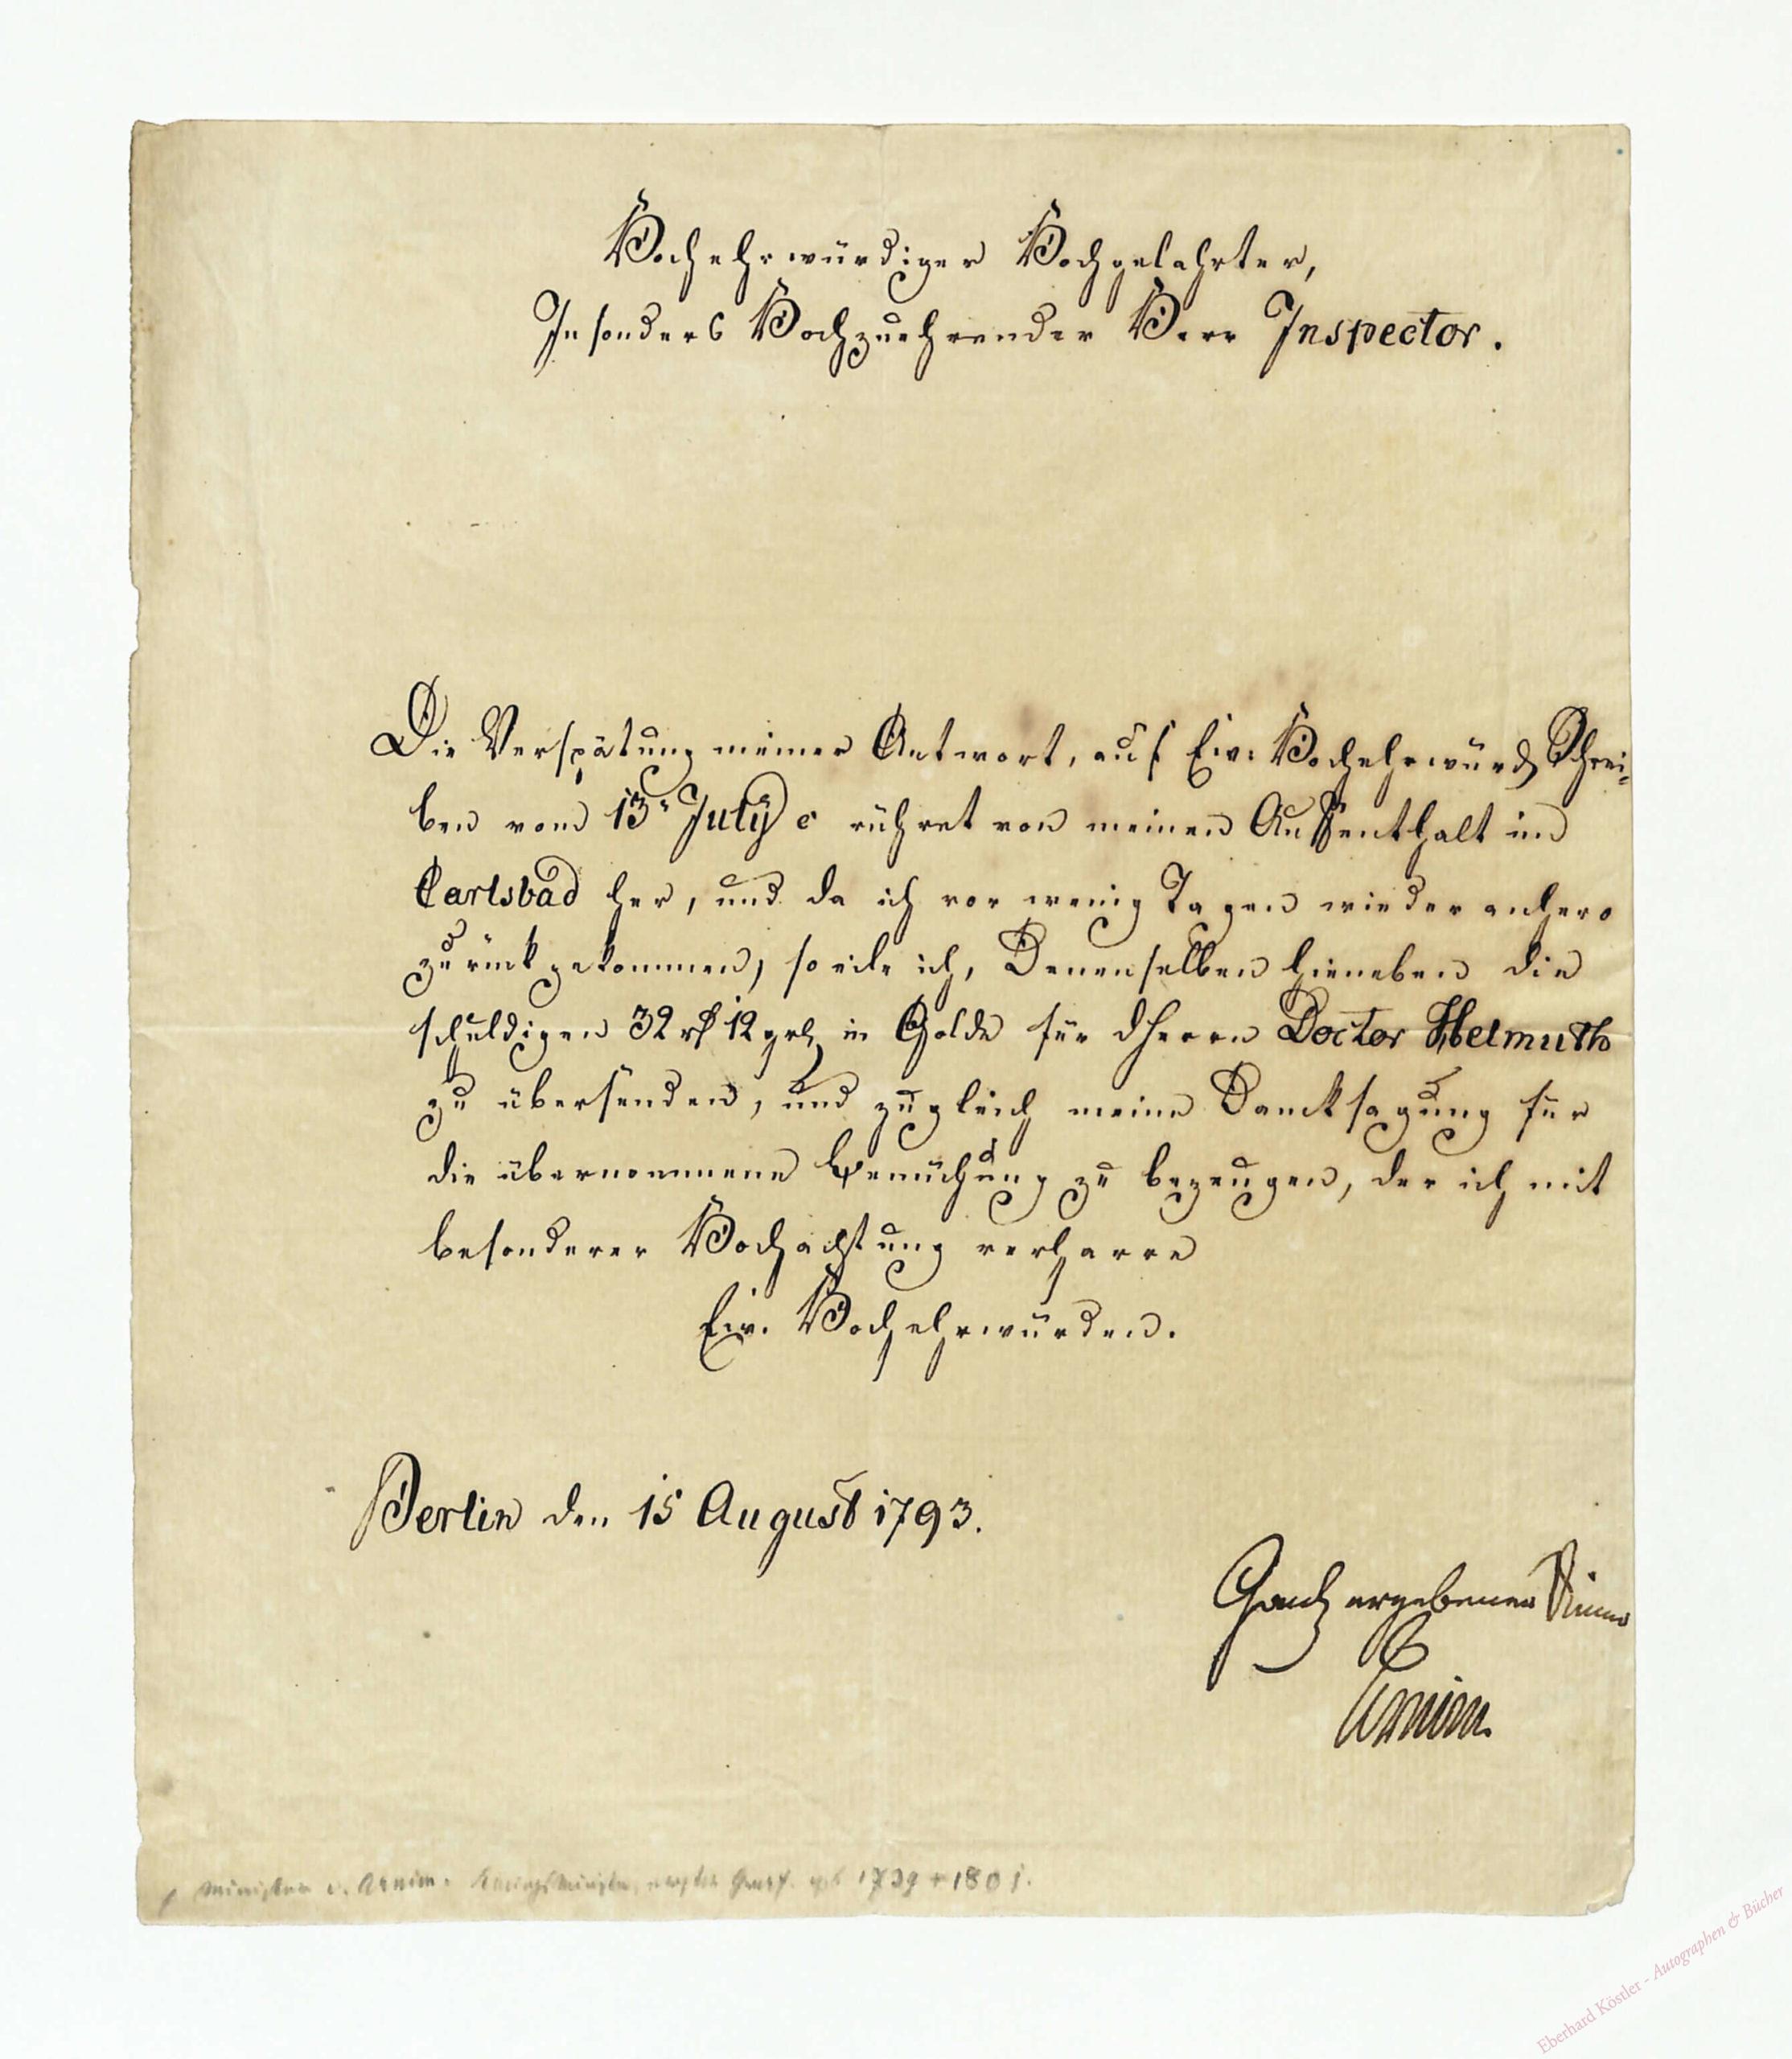 Hochehrwürdiger Hochgelahrter,
Insonders Hochzuehrender Herr Inspector.
Die Verspätung meiner Antwort, auf Ew. Hochehrwürd Schrei-
ben vom 13ⁿ July c rühret von meinen Auffenthalt im
Carlsbad her, und da ich vor wenig Tagen wieder anhero
zurückgekommen, so eile ich, Denenselben hieneben die
schuldigen 32 rℓ 12 grℓ in Golde für dHerrn Doctor Helmuth
zu übersenden, und zugleich meine Dancksagung für
die übernommene Bemühung zu bezeugen, der ich mit
besonderer Hochachtung verharre
Ew. Hochehrwürden.
Berlin den 15 August 1793.
Gantz ergebener Diener
Arnim.
Minister v. Arnim. 1739 + 1801.
Eberhard Köstler - Autographen & Bücher